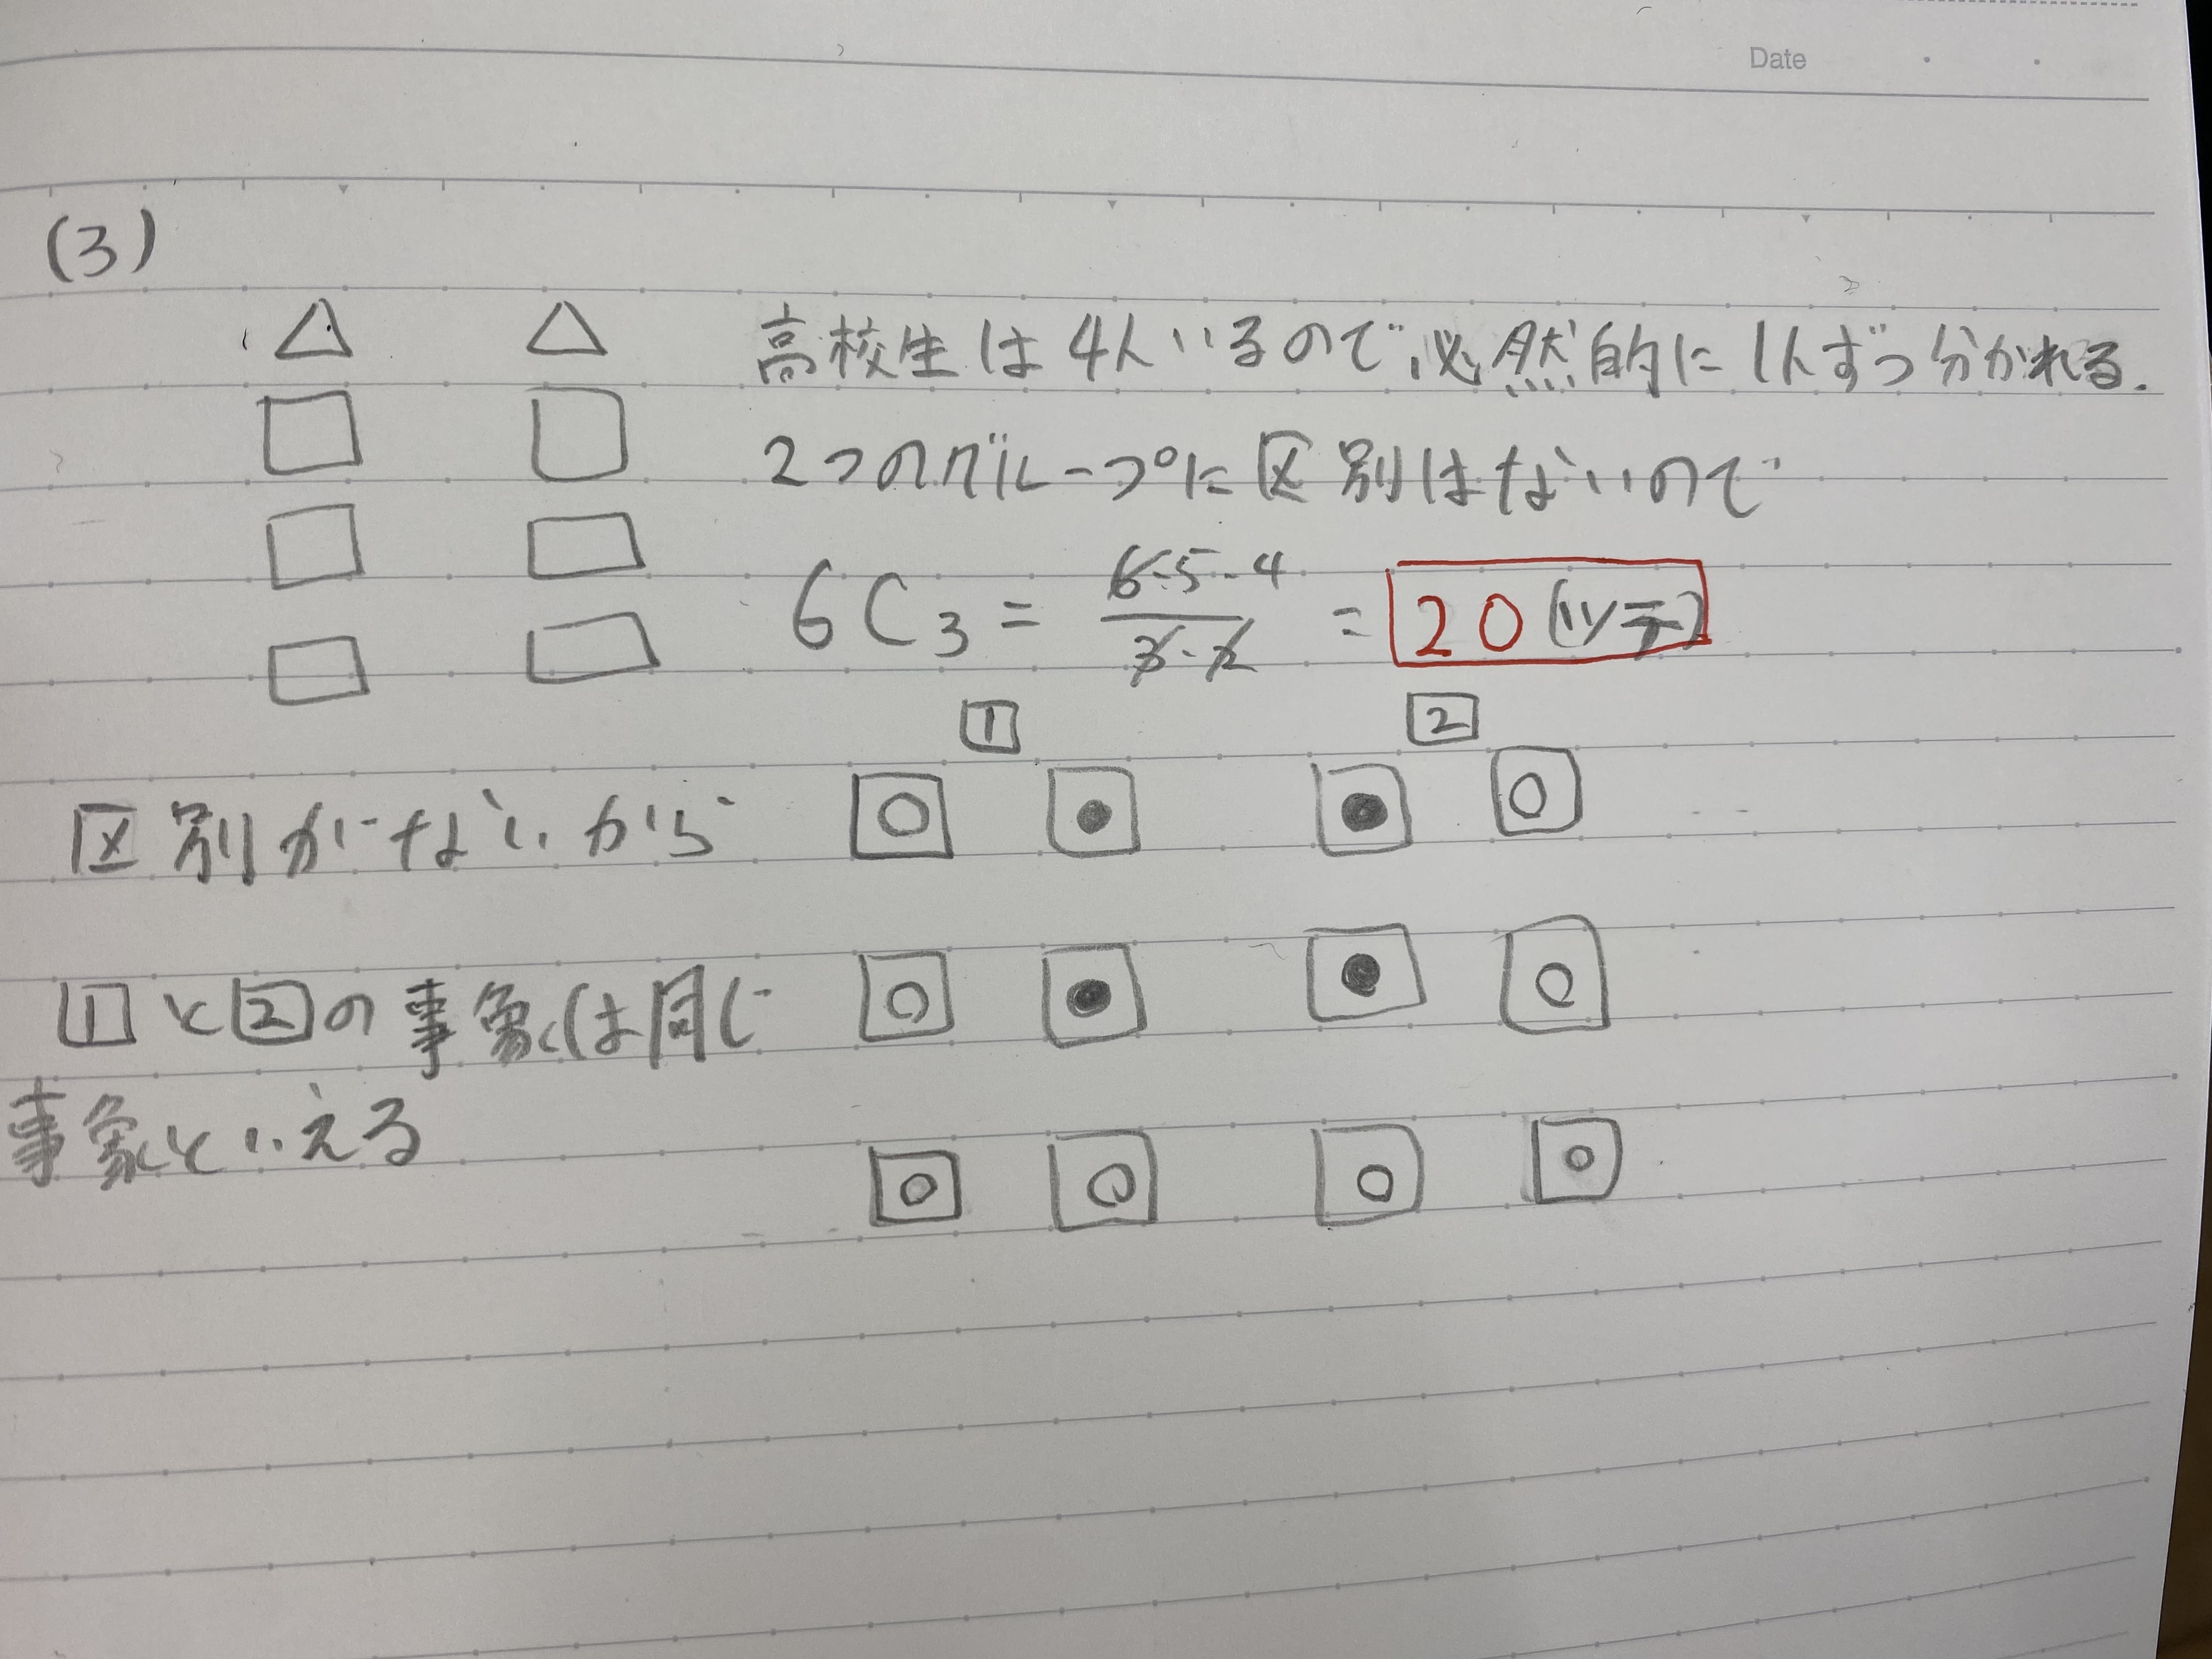 Date
(3)
高校生は4人いるので必然的に1人ずつ分かれる.
2つのグループに区別はないので
6C3 = 6·5·4 / 3·2 = 20(ツテ)
1 2
区別がないから
1と2の事象は同じ
事象といえる